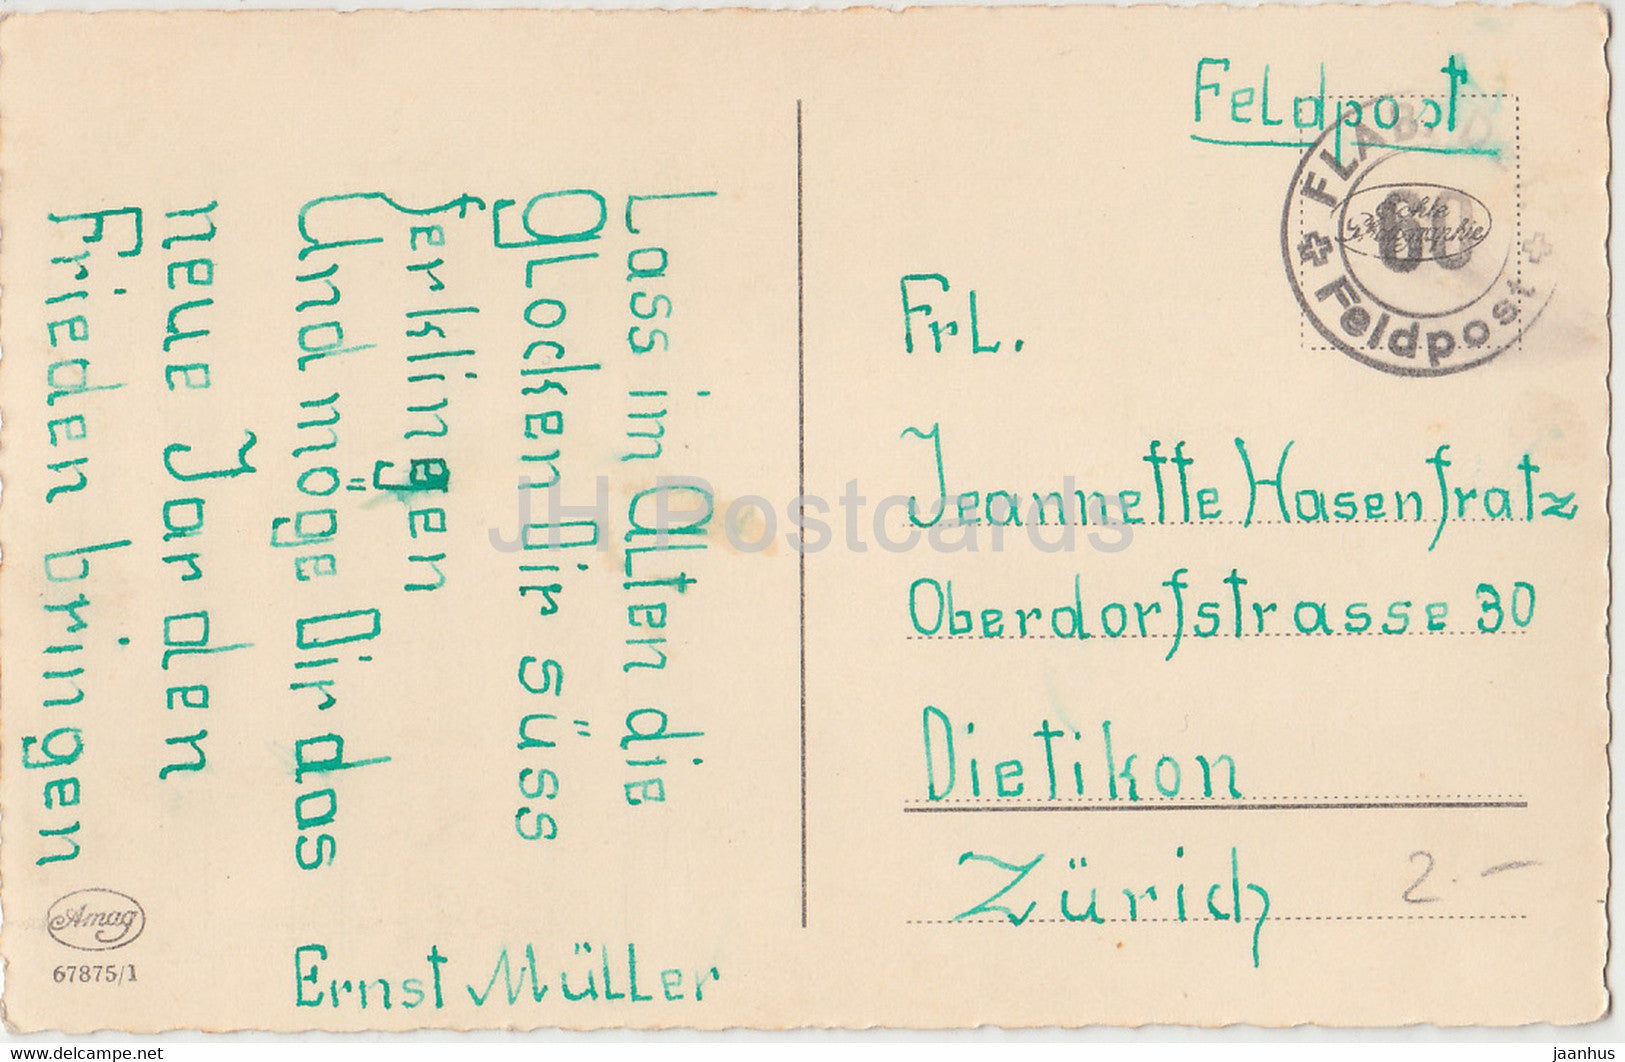 Feldpost
FLAB.
60
Feldpost
Frl.
Jeannette Hasenfratz
Oberdorfstrasse 30
Dietikon
Zürich
2.-
Lass im Alten die
Glocken Dir süss
ferklingen
Und möge Dir das
neue Jar den
Frieden bringen
Ernst Müller
Amag
67875/1
JH Postcards
www.delcampe.net
jaanhus